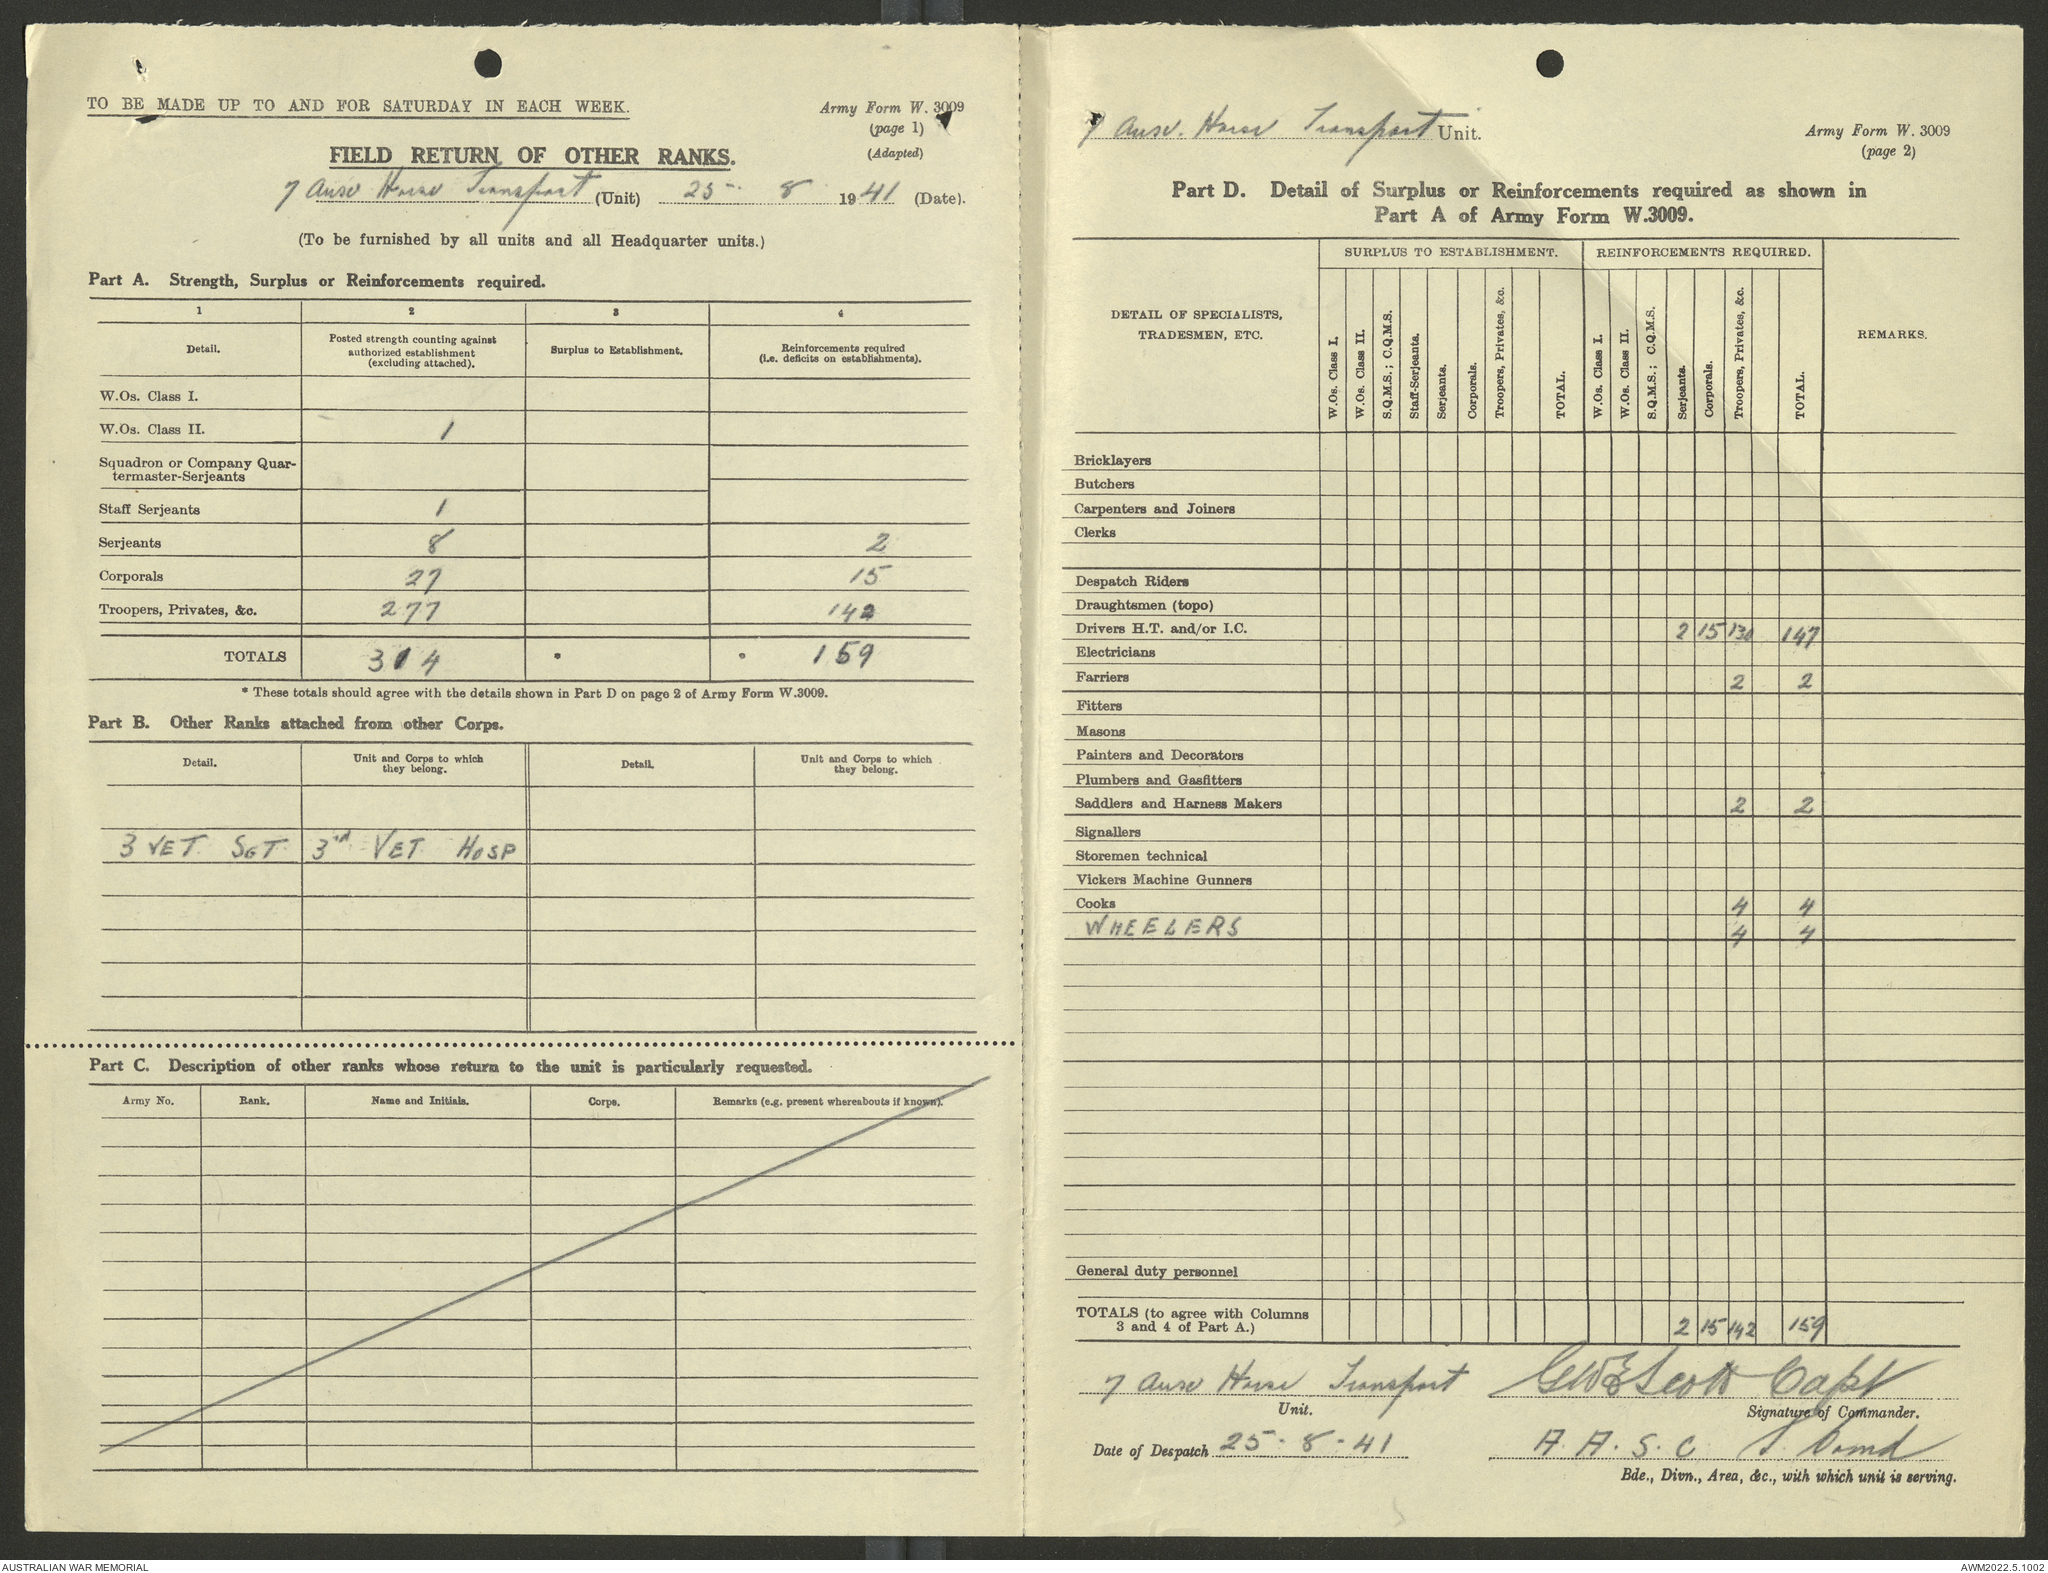 TO BE MADE UP TO AND FOR SATURDAY IN EACH WEEK.
Army Form W. 3009
(page 1)
(Adapted)
FIELD RETURN OF OTHER RANKS.
7 Ause Horse Transport (Unit) 25 - 8 1941 (Date).
(To be furnished by all units and all Headquarter units.)
Part A. Strength, Surplus or Reinforcements required.
1 2 3 4
Detail. Posted strength counting against authorized establishment (excluding attached). Surplus to Establishment. Reinforcements required (i.e. deficits on establishments).
W.Os. Class I.
W.Os. Class II. 1
Squadron or Company Quar-
termaster-Serjeants
Staff Serjeants 1
Serjeants 8 2
Corporals 27 15
Troopers, Privates, &c. 277 142
TOTALS 314 * * 159
* These totals should agree with the details shown in Part D on page 2 of Army Form W.3009.
Part B. Other Ranks attached from other Corps.
Detail. Unit and Corps to which they belong. Detail. Unit and Corps to which they belong.
3 VET SGT 3rd VET HOSP
Part C. Description of other ranks whose return to the unit is particularly requested.
Army No. Rank. Name and Initials. Corps. Remarks (e.g. present whereabouts if known).
7 Ause. Horse Transport Unit.
Army Form W. 3009
(page 2)
Part D. Detail of Surplus or Reinforcements required as shown in
Part A of Army Form W.3009.
DETAIL OF SPECIALISTS, TRADESMEN, ETC. SURPLUS TO ESTABLISHMENT. REINFORCEMENTS REQUIRED. REMARKS.
W.Os. Class I. W.Os. Class II. S.Q.M.S.; C.Q.M.S. Staff-Serjeants. Serjeants. Corporals. Troopers, Privates, &c. TOTAL. W.Os. Class I. W.Os. Class II. S.Q.M.S.; C.Q.M.S. Serjeants. Corporals. Troopers, Privates, &c. TOTAL.
Bricklayers
Butchers
Carpenters and Joiners
Clerks
Despatch Riders
Draughtsmen (topo)
Drivers H.T. and/or I.C. 2 15 130 147
Electricians
Farriers 2 2
Fitters
Masons
Painters and Decorators
Plumbers and Gasfitters
Saddlers and Harness Makers 2 2
Signallers
Storemen technical
Vickers Machine Gunners
Cooks 4 4
WHEELERS 4 4
General duty personnel
TOTALS (to agree with Columns
3 and 4 of Part A.) 2 15 142 159
7 Ause Horse Transport
Unit.
Scott Capt
Signature of Commander.
Date of Despatch 25 - 8 - 41
A. A. S. C.
Bde., Divn., Area, &c., with which unit is serving.
AUSTRALIAN WAR MEMORIAL
AWM2022.5.1002